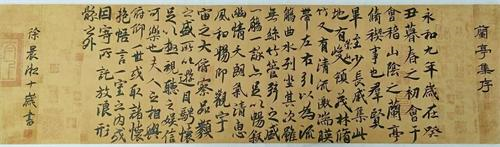 蘭亭集序
永和九年歲在癸
丑暮春之初會于
會稽山陰之蘭亭
脩禊事也群賢
畢至少長咸集此
地有峻領茂林脩
竹又有清流激湍映
帶左右引以為流
觴曲水列坐其次雖
無絲竹管弦之盛
一觴一詠亦足以暢敘
幽情天朗氣清惠
風和暢仰觀宇
宙之大俯察品類
之盛所以遊目騁懷
足以極視聽之娛信
可樂也夫人之相與
俯仰一世或取諸懷
抱悟言一室之內或
因寄所託放浪形
骸之外
徐晨十歲書